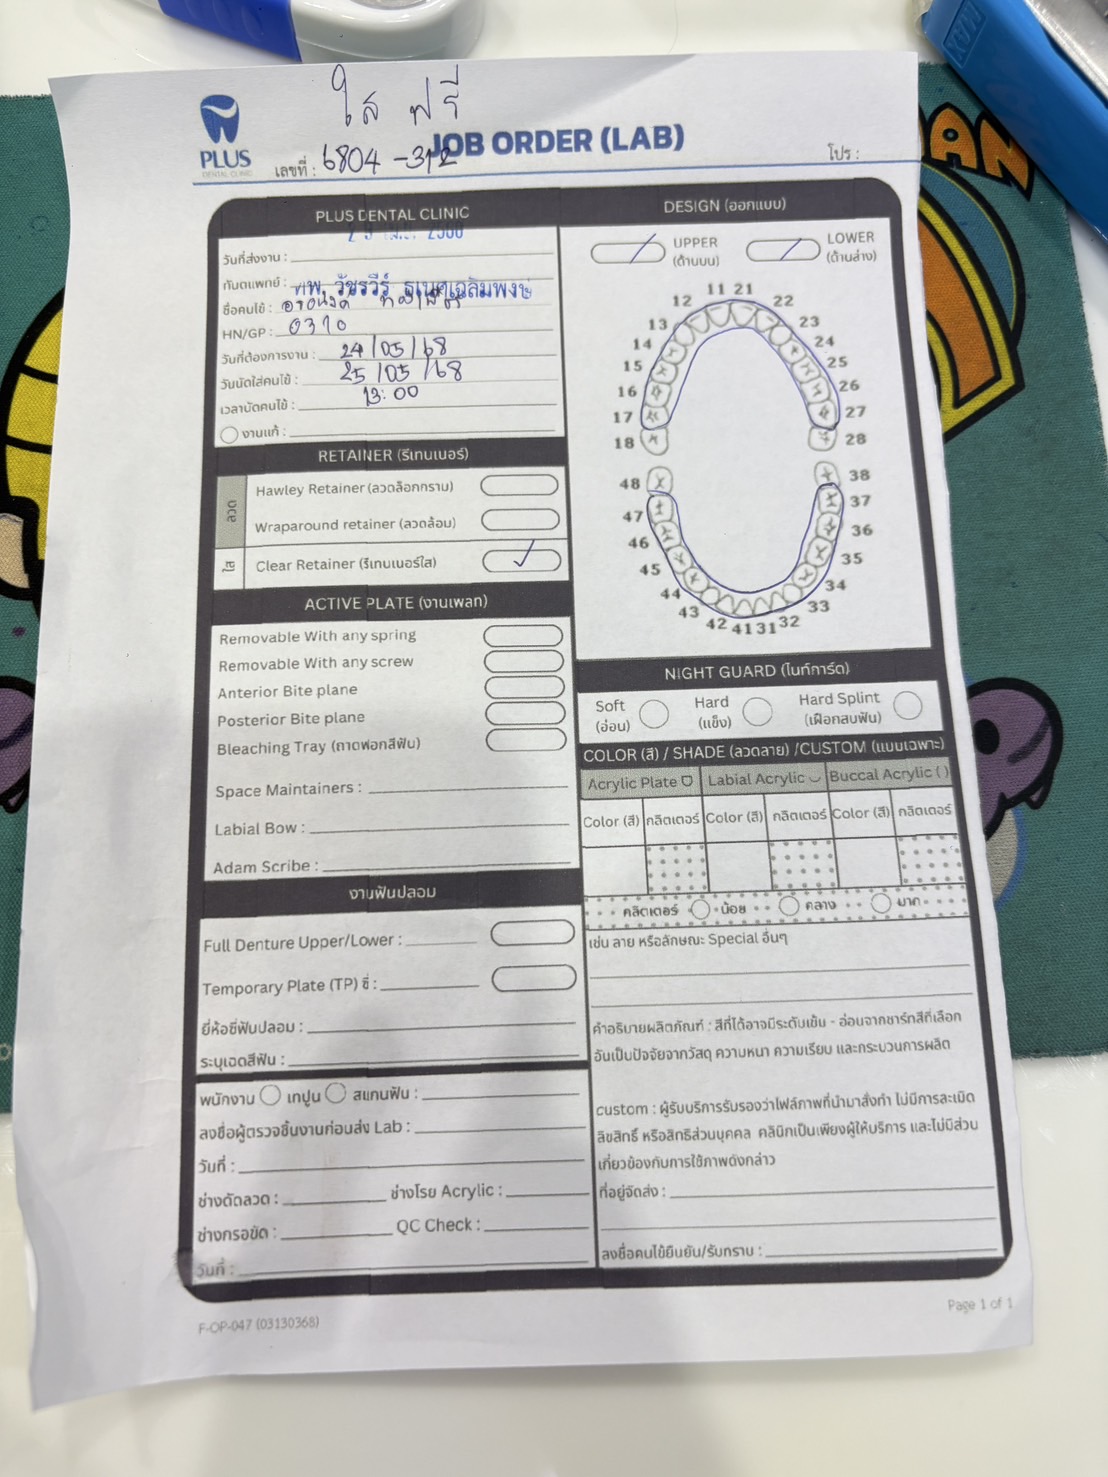 ใส ฟรี
PLUS
DENTAL CLINIC
JOB ORDER (LAB)
เลขที่ : 6804 -312
โปร :
PLUS DENTAL CLINIC
วันที่ส่งงาน :
ทันตแพทย์ : ทพ. วัชรวีร์
ชื่อคนไข้ :
HN/GP : 0310
วันที่ต้องการงาน : 24/05/68
วันนัดใส่คนไข้ : 25/05/68
เวลานัดคนไข้ : 13:00
งานแก้ :
RETAINER (รีเทนเนอร์)
ลวด
Hawley Retainer (ลวดล็อกกราม)
Wraparound retainer (ลวดล้อม)
ใส
Clear Retainer (รีเทนเนอร์ใส)
ACTIVE PLATE (งานเพลท)
Removable With any spring
Removable With any screw
Anterior Bite plane
Posterior Bite plane
Bleaching Tray (ถาดฟอกสีฟัน)
Space Maintainers :
Labial Bow :
Adam Scribe :
งานฟันปลอม
Full Denture Upper/Lower :
Temporary Plate (TP) ซี่ :
ยี่ห้อซี่ฟันปลอม :
ระบุเฉดสีฟัน :
พนักงาน เทปูน สแกนฟัน :
ลงชื่อผู้ตรวจชิ้นงานก่อนส่ง Lab :
วันที่ :
ช่างดัดลวด : ช่างโรย Acrylic :
ช่างกรอขัด : QC Check :
วันที่ :
DESIGN (ออกแบบ)
UPPER (ด้านบน)
LOWER (ด้านล่าง)
11 21
12 22
13 23
14 24
15 25
16 26
17 27
18 28
48 38
47 37
46 36
45 35
44 34
43 33
42 41 31 32
NIGHT GUARD (ไนท์การ์ด)
Soft (อ่อน) Hard (แข็ง) Hard Splint (เฝือกสบฟัน)
COLOR (สี) / SHADE (ลวดลาย) /CUSTOM (แบบเฉพาะ)
Acrylic Plate Labial Acrylic Buccal Acrylic ( )
Color (สี) กลิตเตอร์ Color (สี) กลิตเตอร์ Color (สี) กลิตเตอร์
กลิตเตอร์ น้อย กลาง มาก
เช่น ลาย หรือลักษณะ Special อื่นๆ
คำอธิบายผลิตภัณฑ์ : สีที่ได้อาจมีระดับเข้ม - อ่อนจากชาร์ทสีที่เลือก
อันเป็นปัจจัยจากวัสดุ ความหนา ความเรียบ และกระบวนการผลิต
custom : ผู้รับบริการรับรองว่าไฟล์ภาพที่นำมาสั่งทำ ไม่มีการละเมิด
ลิขสิทธิ์ หรือสิทธิส่วนบุคคล คลินิกเป็นเพียงผู้ให้บริการ และไม่มีส่วน
เกี่ยวข้องกับการใช้ภาพดังกล่าว
ที่อยู่จัดส่ง :
ลงชื่อคนไข้ยืนยัน/รับทราบ :
F-OP-047 (03130368)
Page 1 of 1